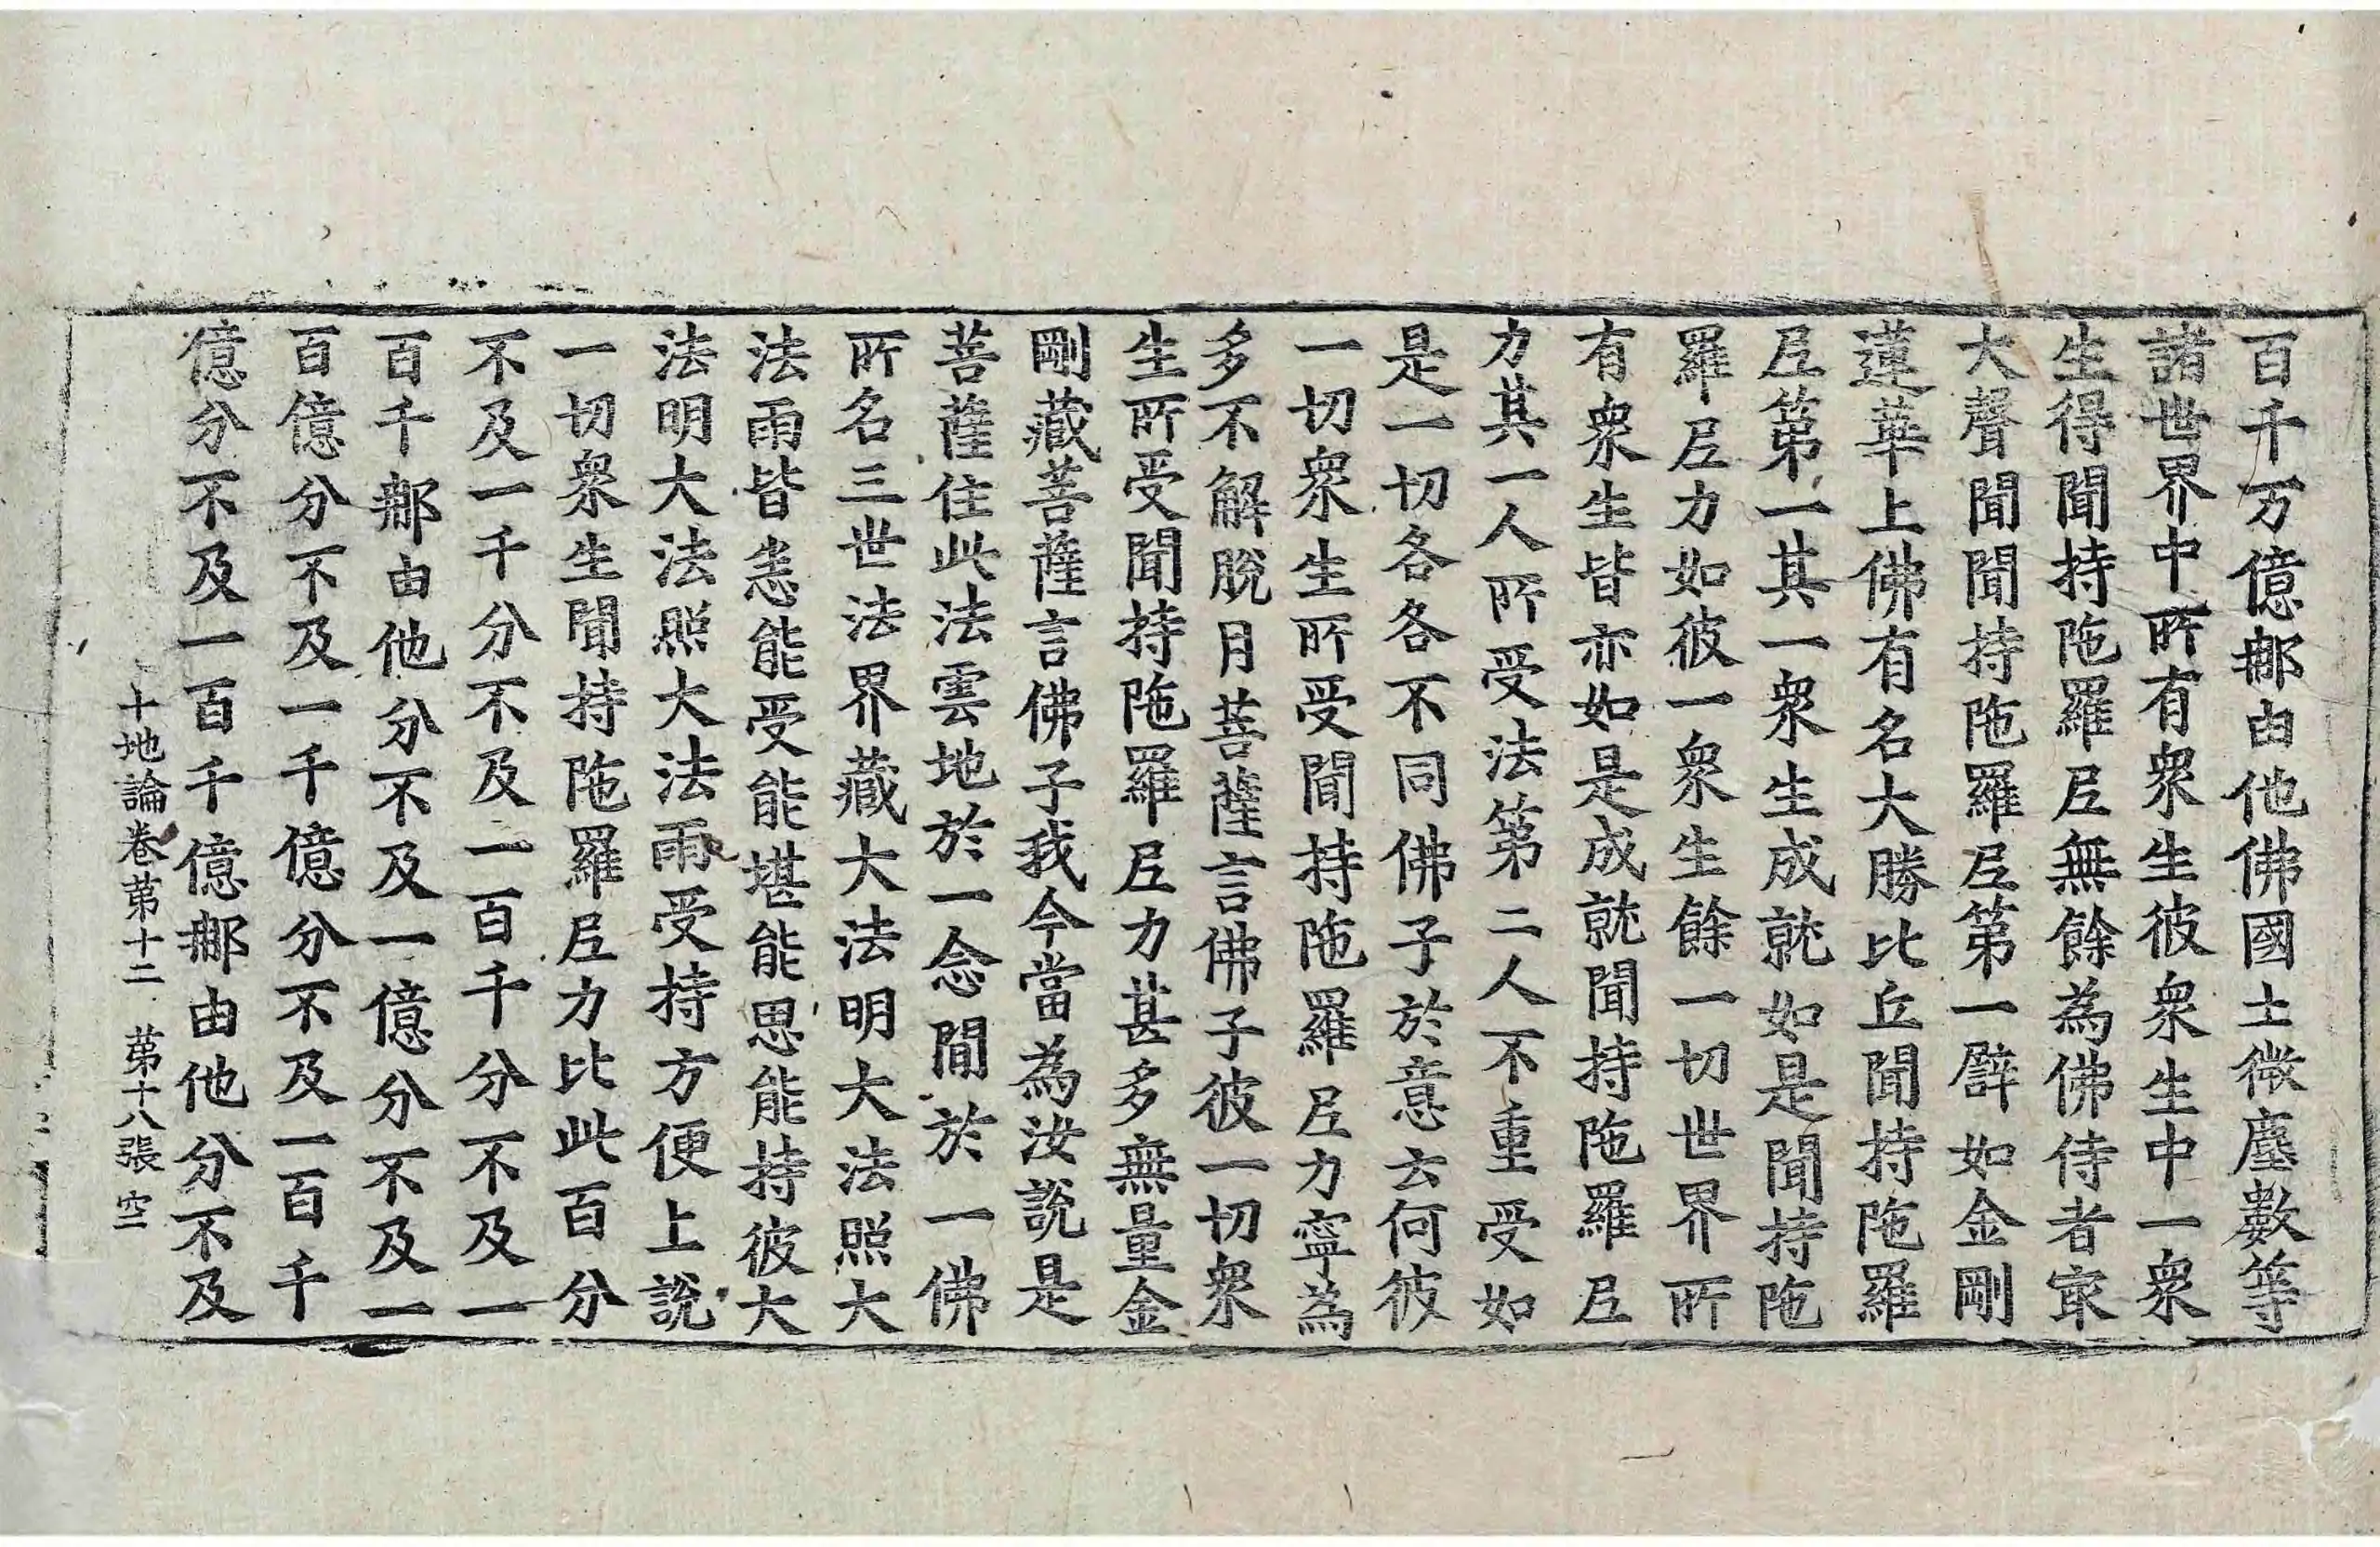 百千万億𨚗由他佛國土微塵數等
諸世界中所有衆生彼衆生中一衆
生得聞持陁羅𡰱無餘為佛侍者㝡
大聲聞聞持陁羅𡰱第一譬如金剛
蓮華上佛有名大勝比丘聞持陁羅
𡰱第一其一衆生成就如是聞持陁
羅𡰱力如彼一衆生餘一切世界所
有衆生皆亦如是成就聞持陁羅𡰱
力其一人所受法第二人不重受如
是一切各各不同佛子於意云何彼
一切衆生所受聞持陁羅𡰱力寧為
多不解脫月菩薩言佛子彼一切衆
生所受聞持陁羅𡰱力甚多無量金
剛藏菩薩言佛子我今當為汝說是
菩薩住此法雲地於一念間於一佛
所名三世法界藏大法明大法照大
法雨皆悉能受能堪能思能持彼大
法明大法照大法雨受持方便上說
一切衆生聞持陁羅𡰱力比此百分
不及一千分不及一百千分不及一
百千𨚗由他分不及一億分不及一
百億分不及一千億分不及一百千
億分不及一百千億𨚗由他分不及
十地論卷第十二 第十八張 空